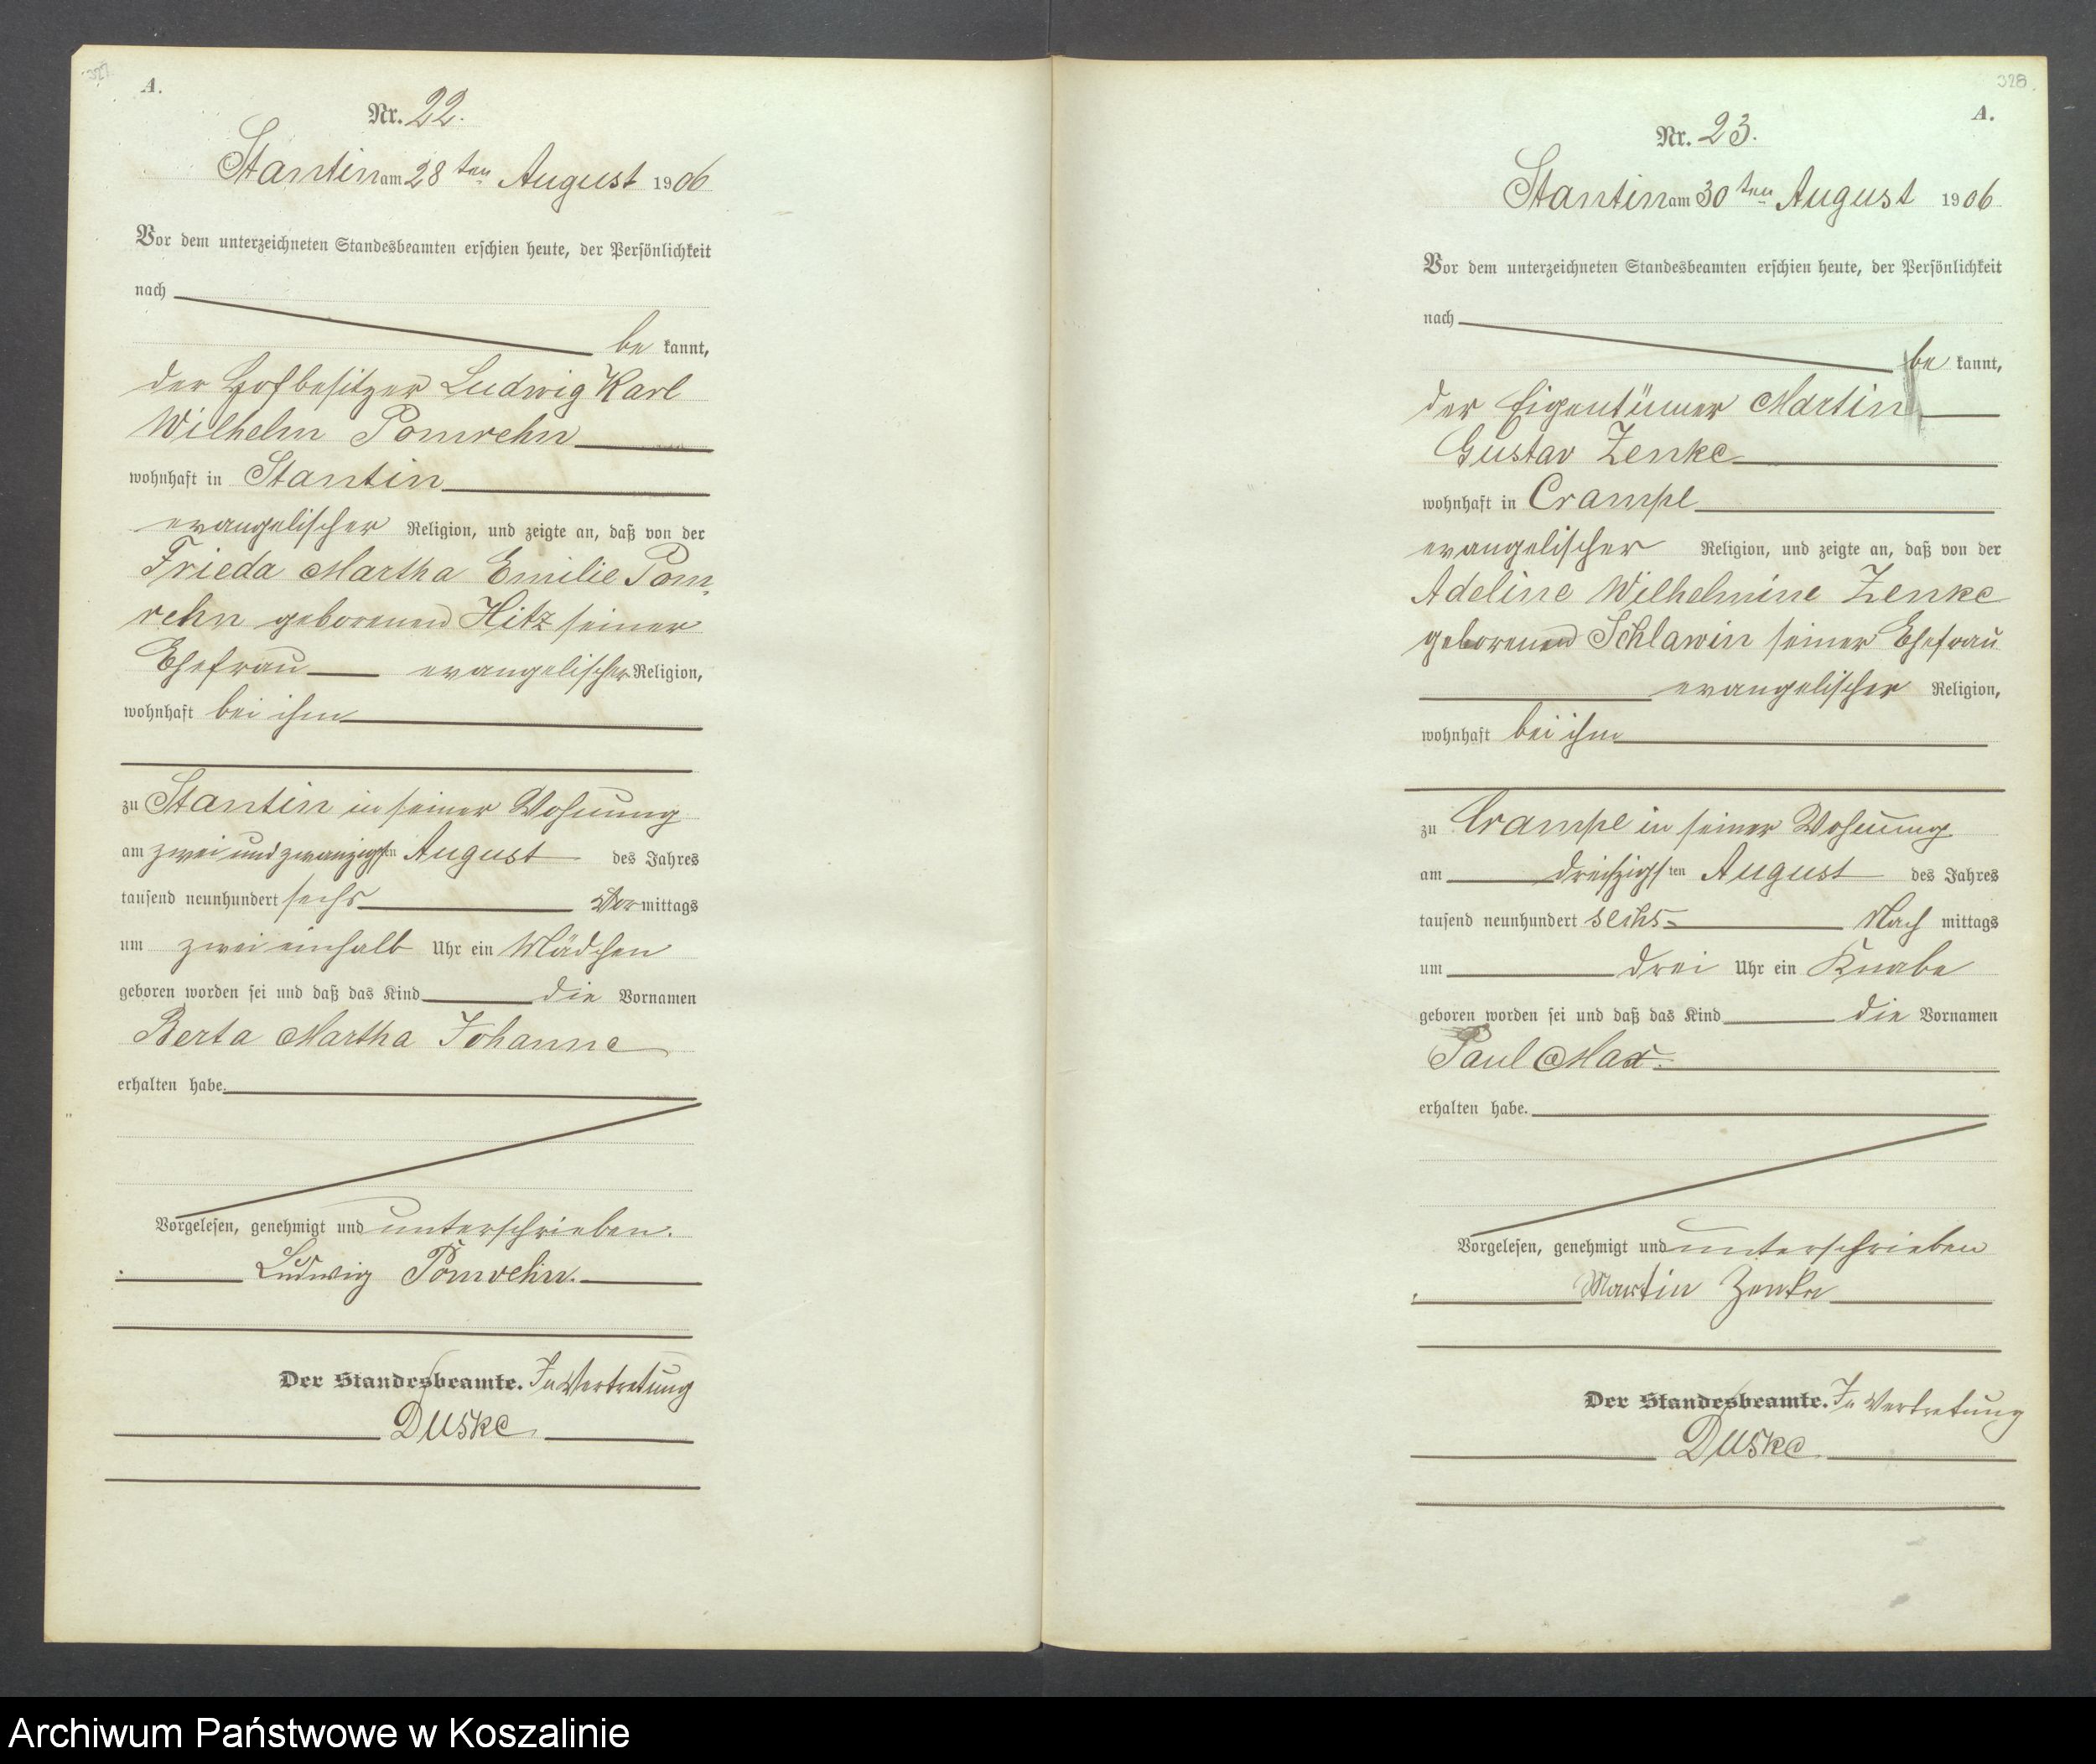 327.
A.
Nr. 22.
Stantin am 28 ten August 1906
Vor dem unterzeichneten Standesbeamten erschien heute, der Persönlichkeit
nach
be kannt,
der Hofbesitzer Ludwig Karl
Wilhelm Pomrehn
wohnhaft in Stantin
evangelischer Religion, und zeigte an, daß von der
Frieda Martha Emilie Pom-
rehn geborenen Hitz seiner
Ehefrau evangelischer Religion,
wohnhaft bei ihm
zu Stantin in seiner Wohnung
am zwei und zwanzigsten August des Jahres
tausend neunhundert sechs Vormittags
um zwei einhalb Uhr ein Mädchen
geboren worden sei und daß das Kind die Vornamen
Berta Martha Johanne
erhalten habe.
Vorgelesen, genehmigt und unterschrieben.
Ludwig Pomrehn.
Der Standesbeamte. In Vertretung
Duske
328.
A.
Nr. 23.
Stantin am 30 ten August 1906
Vor dem unterzeichneten Standesbeamten erschien heute, der Persönlichkeit
nach
be kannt,
der Eigentümer Martin
Gustav Zenke
wohnhaft in Crampe
evangelischer Religion, und zeigte an, daß von der
Adeline Wilhelmine Zenke
geborenen Schlawin seiner Ehefrau
evangelischer Religion,
wohnhaft bei ihm
zu Crampe in seiner Wohnung
am dreißigsten August des Jahres
tausend neunhundert sechs Nach mittags
um drei Uhr ein Knabe
geboren worden sei und daß das Kind die Vornamen
Paul Max.
erhalten habe.
Vorgelesen, genehmigt und unterschrieben
Martin Zenke
Der Standesbeamte. In Vertretung
Duske
Archiwum Państwowe w Koszalinie